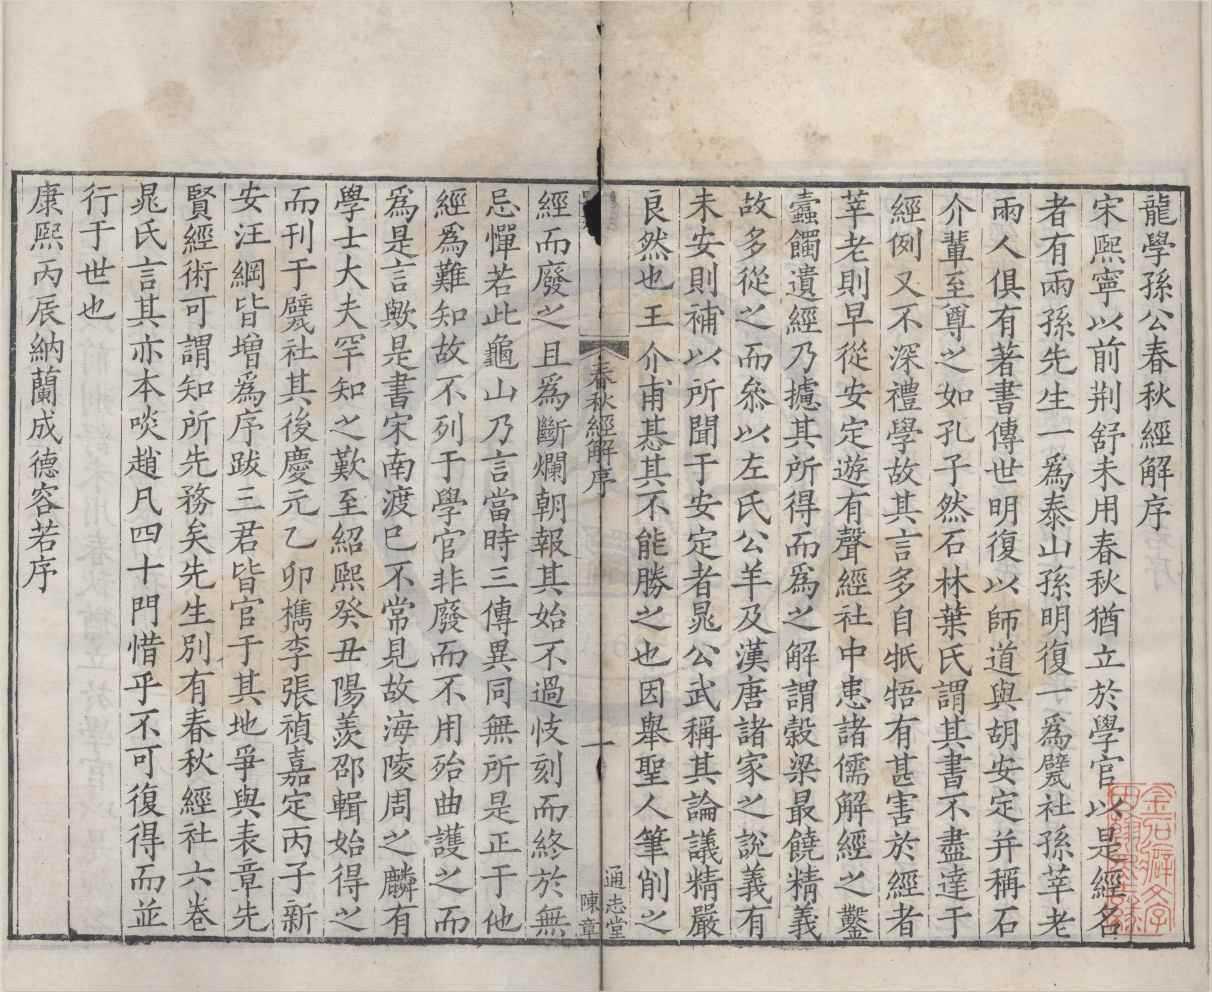 龍學孫公春秋經解序
宋熙寧以前荆舒未用春秋猶立於學官以是經名
者有兩孫先生一爲泰山孫明復一爲甓社孫莘老
兩人俱有著書傳世明復以師道與胡安定并稱石
介輩至尊之如孔子然石林葉氏謂其書不盡達于
經例又不深禮學故其言多自牴牾有甚害於經者
莘老則早從安定遊有聲經社中患諸儒解經之鑿
蠹蠋遺經乃攄其所得而爲之解謂穀梁最饒精義
故多從之而叅以左氏公羊及漢唐諸家之說義有
未安則補以所聞于安定者晁公武稱其論議精嚴
良然也王介甫惎其不能勝之也因舉聖人筆削之
春秋經解序
一
通志堂
陳章
經而廢之且爲斷爛朝報其始不過忮刻而終於無
忌憚若此龜山乃言當時三傳異同無所是正于他
經爲難知故不列于學官非廢而不用殆曲護之而
爲是言歟是書宋南渡已不常見故海陵周之麟有
學士大夫罕知之歎至紹熙癸丑陽羨邵輯始得之
而刊于甓社其後慶元乙卯檇李張禎嘉定丙子新
安汪綱皆增爲序跋三君皆官于其地爭與表章先
賢經術可謂知所先務矣先生別有春秋經社六卷
晁氏言其亦本啖趙凡四十門惜乎不可復得而並
行于世也
康熙丙辰納蘭成德容若序